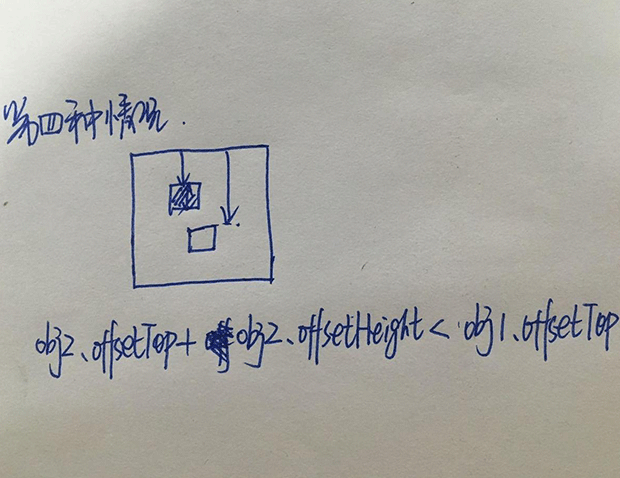 第四种情况.
obj2、offsetTop + obj2、offsetHeight < obj1、offsetTop